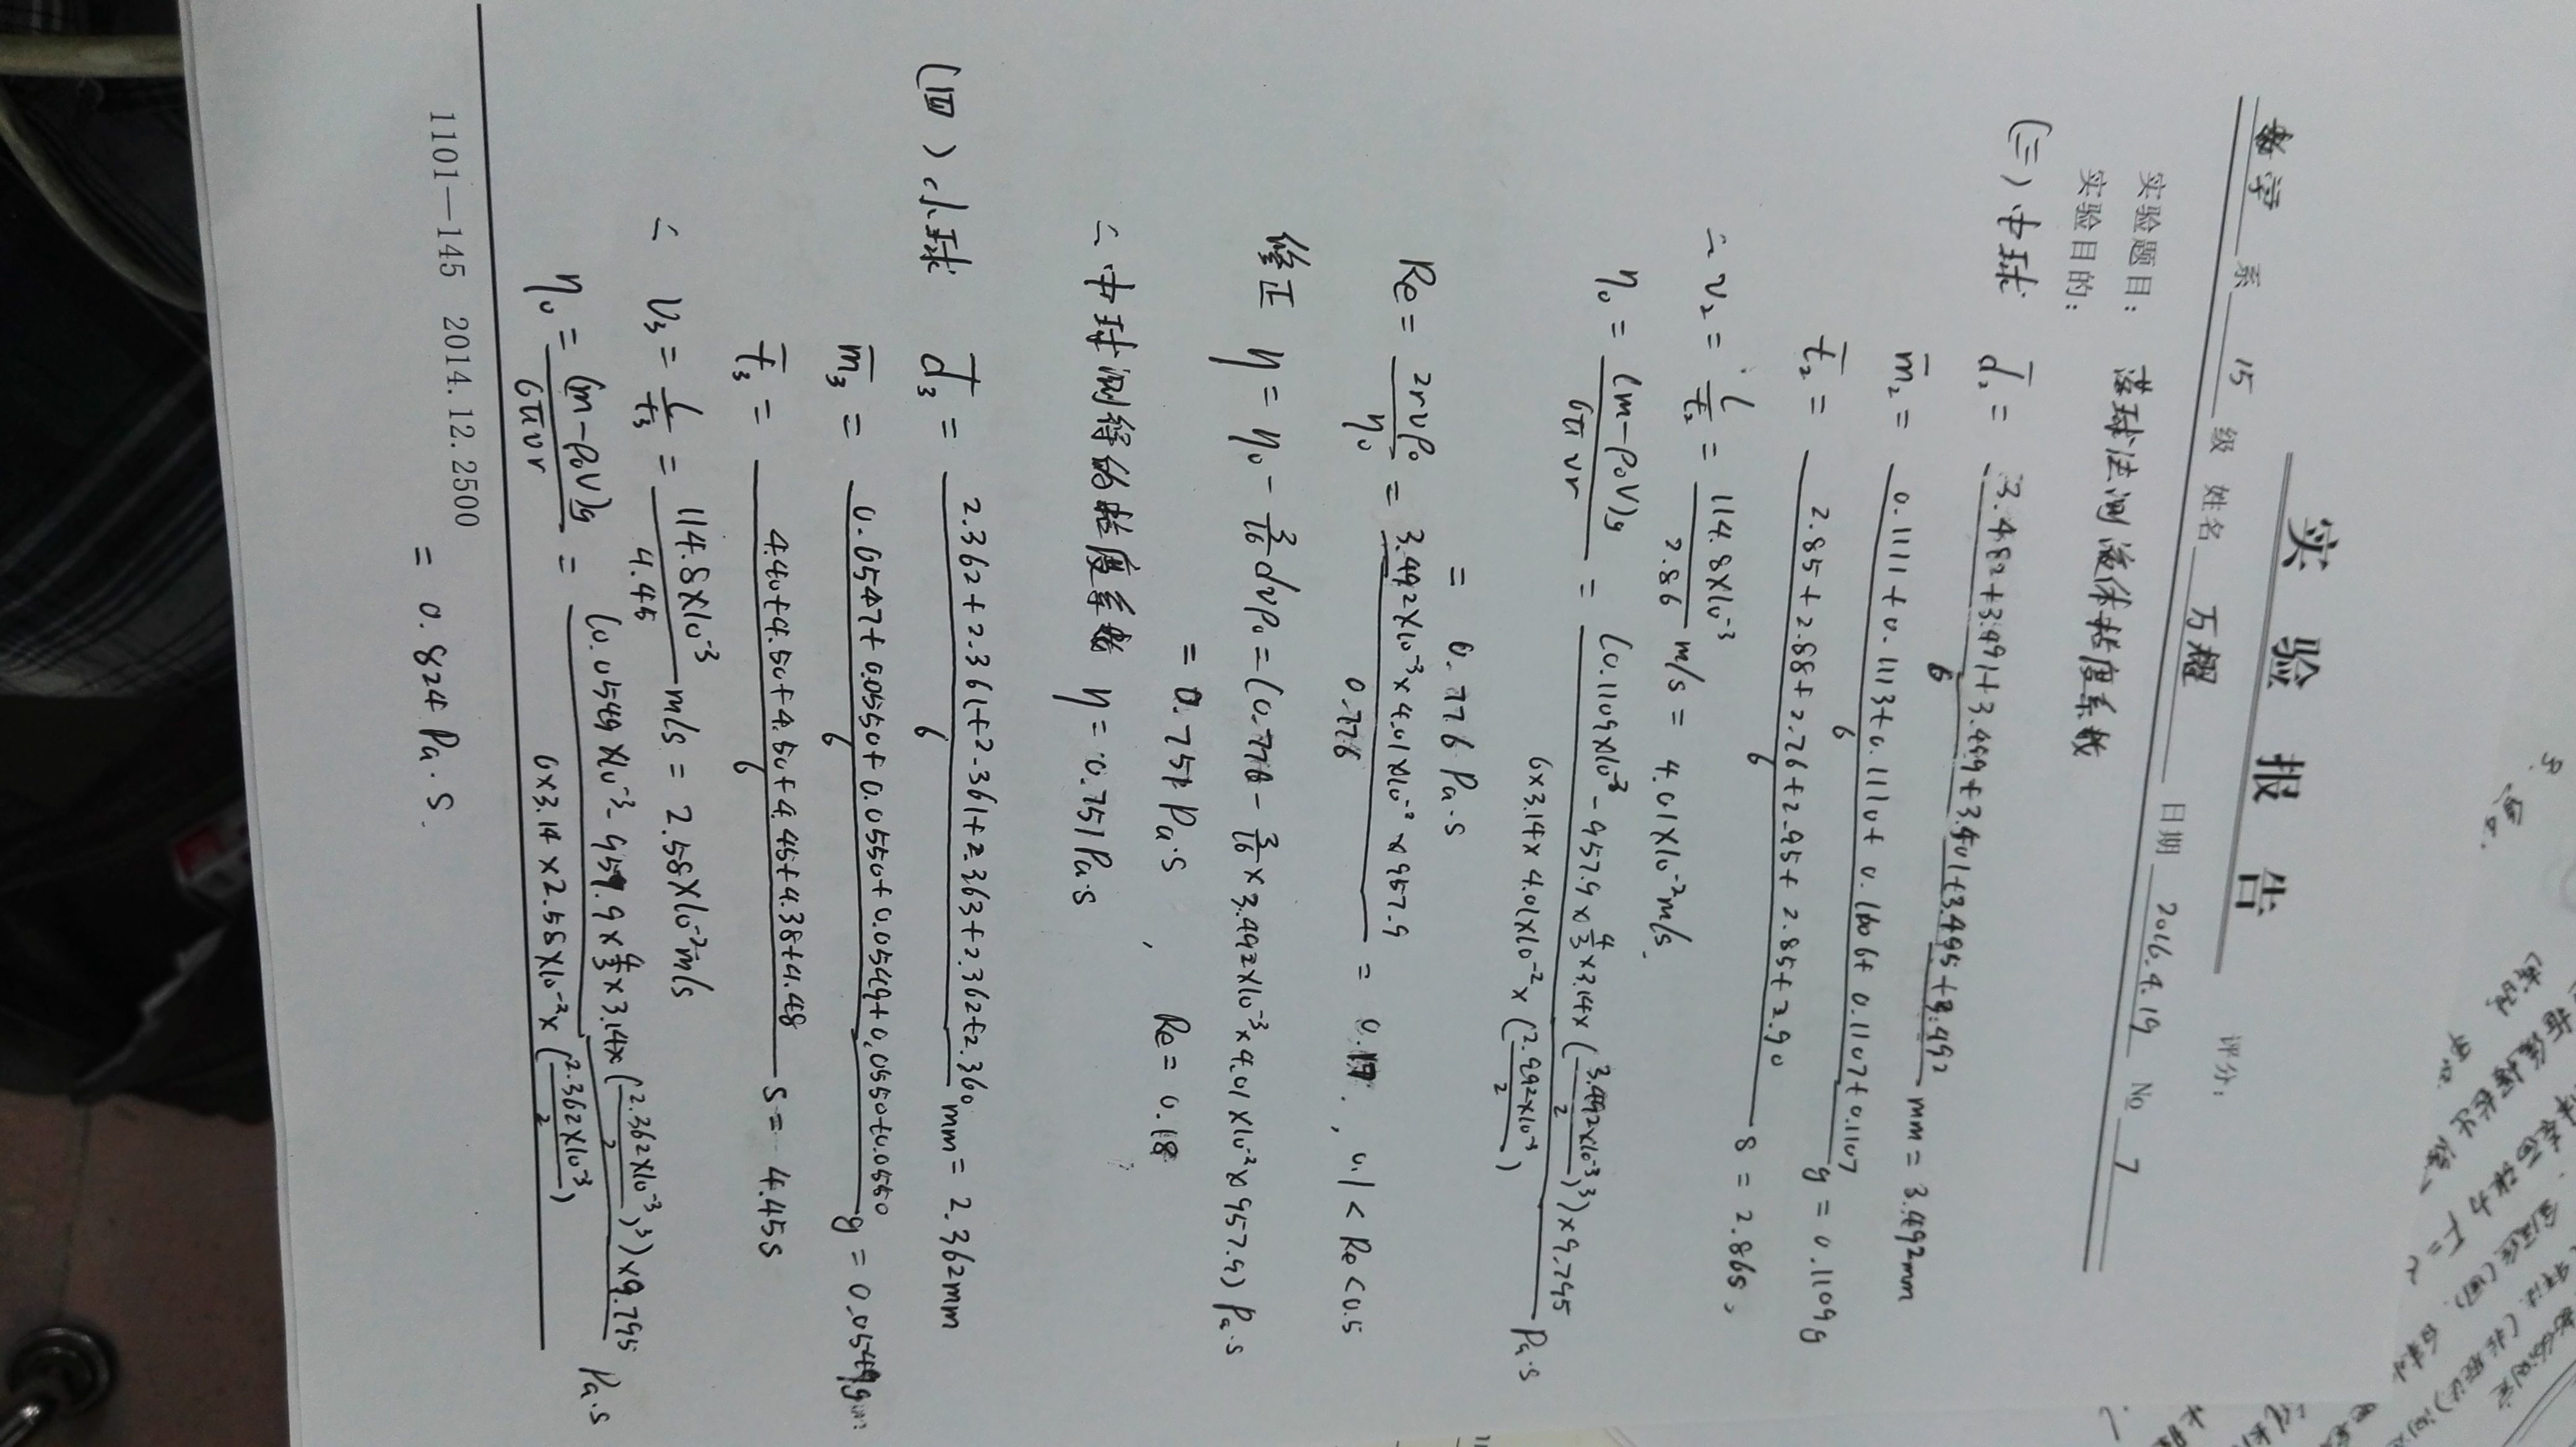 实 验 报 告
评分:
数学 系 15 级 姓名 万耀 日期 2016.4.19 No 7
实验题目: 落球法测液体粘度系数
实验目的:
(三) 中球 d̄₂ = (3.482+3.491+3.499+3.491+3.495+3.492)/6 mm = 3.492mm
m̄₂ = (0.1111+0.1113+0.1110+0.1106+0.1107+0.1107)/6 g = 0.1109g
t̄₂ = (2.85+2.88+2.76+2.95+2.85+2.90)/6 s = 2.86s,
∴ v₂ = L/t₂ = (114.8×10⁻³)/2.86 m/s = 4.01×10⁻²m/s.
η₀ = (m-ρ₀V)g/6πvr = (0.1109×10⁻³-957.9×4/3×3.14×(3.492×10⁻³/2)³)×9.795/(6×3.14×4.01×10⁻²×(3.492×10⁻³/2)) Pa·s
= 0.776 Pa·s
Re = 2rvρ₀/η₀ = (3.492×10⁻³×4.01×10⁻²×957.9)/0.776 = 0.17, 0.1<Re<0.5
修正 η = η₀ - 3/16 dvρ₀ = (0.776 - 3/16×3.492×10⁻³×4.01×10⁻²×957.9) Pa·s
= 0.751 Pa·s, Re = 0.18
∴ 中球测得的粘度系数 η = 0.751Pa·s
(四) 小球 d̄₃ = (2.362+2.361+2.361+2.363+2.362+2.360)/6 mm = 2.362mm
m̄₃ = (0.0547+0.0550+0.0550+0.0549+0.0550+0.0550)/6 g = 0.0549g
t̄₃ = (4.40+4.50+4.50+4.45+4.38+4.48)/6 s = 4.45s
∴ v₃ = L/t₃ = (114.8×10⁻³)/4.45 m/s = 2.58×10⁻²m/s
η₀ = (m-ρ₀V)g/6πvr = (0.0549×10⁻³-957.9×4/3×3.14×(2.362×10⁻³/2)³)×9.795/(6×3.14×2.58×10⁻²×(2.362×10⁻³/2)) Pa·s
= 0.824 Pa·s.
1101—145 2014.12.2500